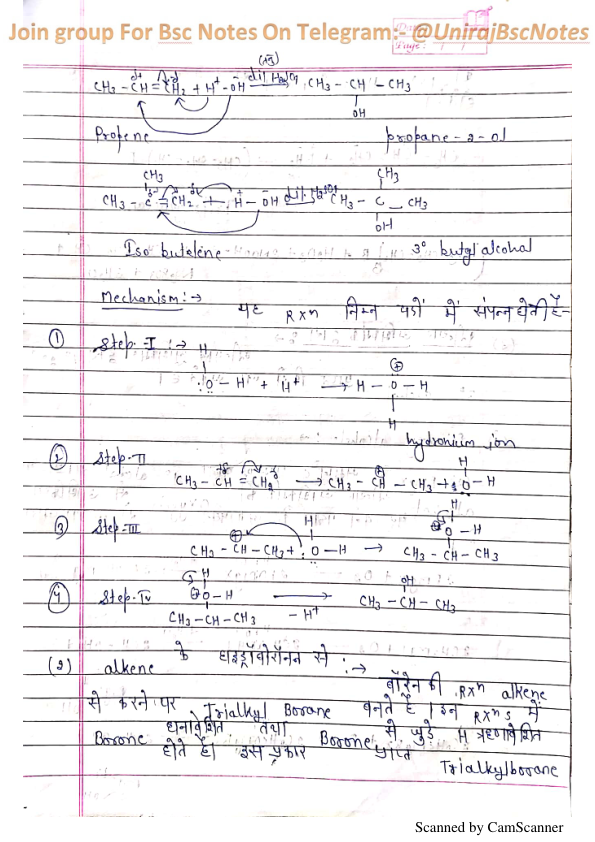 Join group For Bsc Notes On Telegram:- @UnirajBscNotes
CH₃ - CH = CH₂ + H⁺ - OH⁻ dil H₂SO₄ CH₃ - CH - CH₃
OH
Propene propane-2-ol
CH₃ CH₃
CH₃ - C = CH₂ + H⁺ - OH⁻ dil. H₂SO₄ CH₃ - C - CH₃
OH
Iso butelene 3° butyl alcohal
Mechanism:→ यह Rxⁿ निम्न पदों में संपन्न होती है-
① Step-I :→ H
:O - H + H⁺ → H - O⊕ - H
H
hydronium ion
② Step-II H
CH₃ - CH = CH₂ → CH₃ - CH⊕ - CH₃ + :O - H
③ Step-III H H
CH₃ - CH⊕ - CH₃ + :O - H → ⊕O - H
CH₃ - CH - CH₃
④ Step-IV H OH
⊕O - H → CH₃ - CH - CH₃
CH₃ - CH - CH₃ - H⁺
(2) alkene के हाइड्रोबोरॉनन से :→
बॉरेन की Rxⁿ alkene
से करने पर Trialkyl Borane बनते है। इन Rxⁿs में
Borone धनावेशित तथा Borone से जुड़े H ऋणावेशित
होते है। इस प्रकार प्राप्त Trialkylborane
Scanned by CamScanner